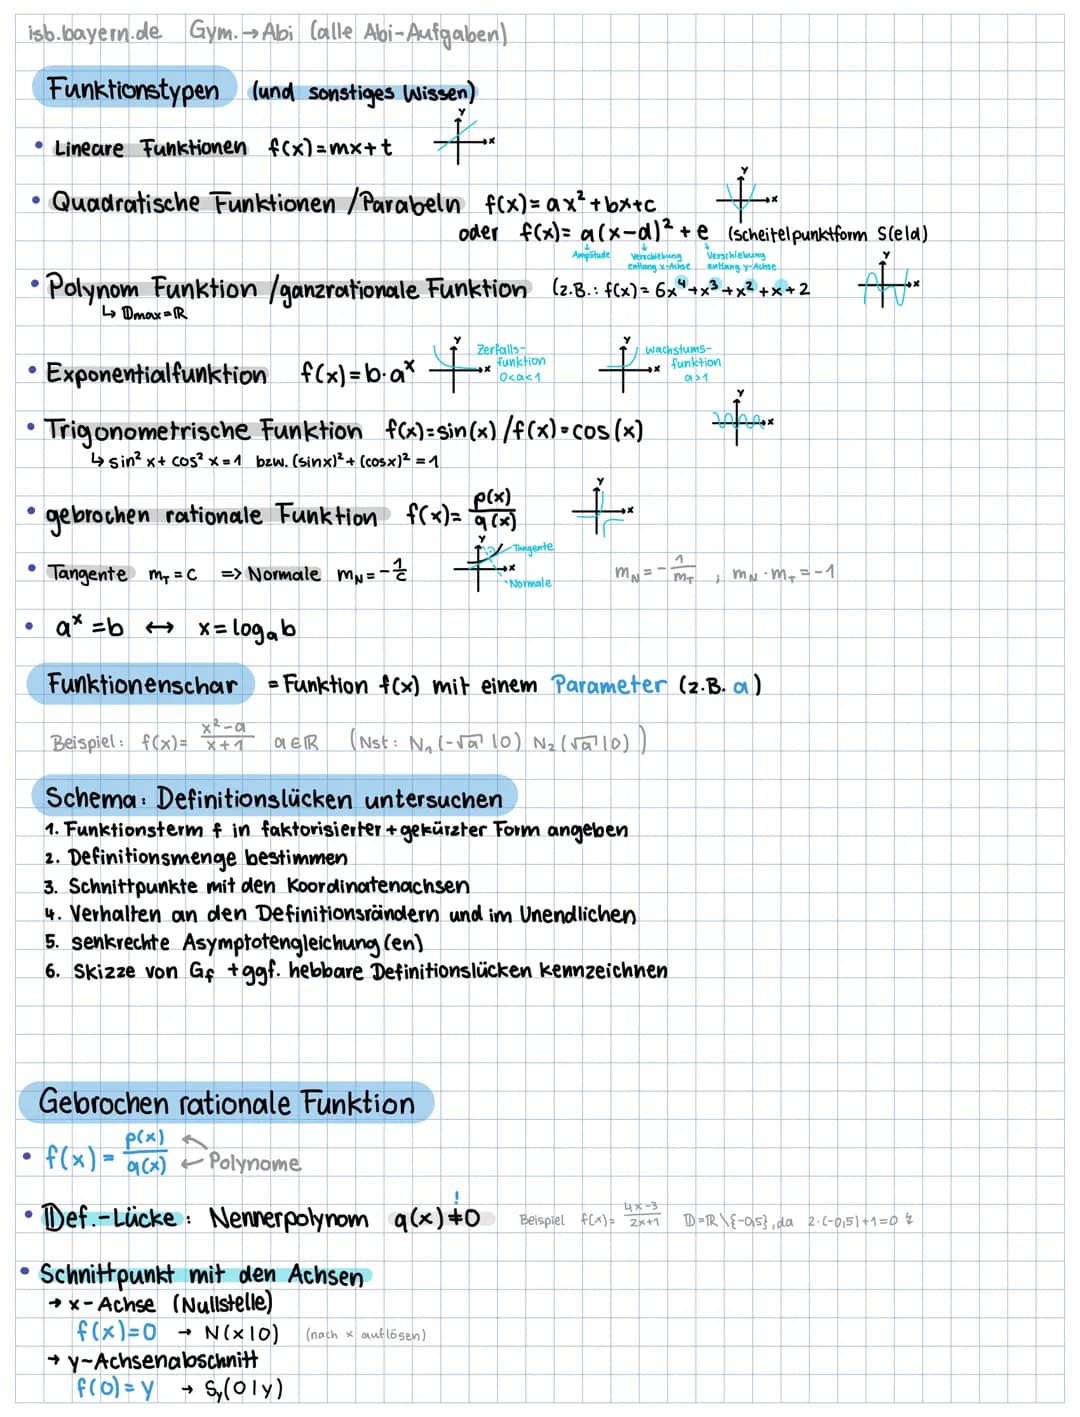 isb.bayern.de Gym.→Abi (alle Abi-Aufgaben)
Funktionstypen (und sonstiges Wissen)
• Lineare Funktionen f(x)=mx+t
• Quadratische Funktionen /Parabeln f(x)=ax²+bx+c
oder f(x)= a(x-d)²+e (scheitelpunktform S(e|d)
Amplitude Verschiebung entlang x-Achse Verschiebung entlang y-Achse
• Polynom Funktion /ganzrationale Funktion (z.B.: f(x)= 6x⁴+x³+x²+x+2
↳ 𝔻max=ℝ
• Exponentialfunktion f(x)=b·aˣ Zerfalls-funktion 0<a<1 Wachstums-funktion a>1
• Trigonometrische Funktion f(x)=sin(x) /f(x)=cos(x)
↳ sin²x+cos²x=1 bzw. (sinx)²+(cosx)²=1
• gebrochen rationale Funktion f(x)= p(x)/q(x)
• Tangente m_T=c => Normale m_N=-1/c Tangente Normale m_N=-1/m_T ; m_N·m_T=-1
• aˣ=b ↔ x=logₐb
Funktionenschar = Funktion f(x) mit einem Parameter (z.B. a)
Beispiel: f(x)= x²-a/x+1 a∈ℝ (Nst: N₁(-√a|0) N₂(√a|0))
Schema: Definitionslücken untersuchen
1. Funktionsterm f in faktorisierter+gekürzter Form angeben
2. Definitionsmenge bestimmen
3. Schnittpunkte mit den Koordinatenachsen
4. Verhalten an den Definitionsrändern und im Unendlichen
5. senkrechte Asymptotengleichung(en)
6. Skizze von G_f +ggf. hebbare Definitionslücken kennzeichnen
Gebrochen rationale Funktion
• f(x)= p(x)/q(x) ← Polynome
• 𝔻ef.-Lücke: Nennerpolynom q(x)≠0 ! Beispiel f(x)= 4x-3/2x+1 𝔻=ℝ\{-0,5}, da 2·(-0,5)+1=0 ↯
• Schnittpunkt mit den Achsen
→ x-Achse (Nullstelle)
f(x)=0 → N(x|0) (nach x auflösen)
→ y-Achsenabschnitt
f(0)=y → S_y(0|y)